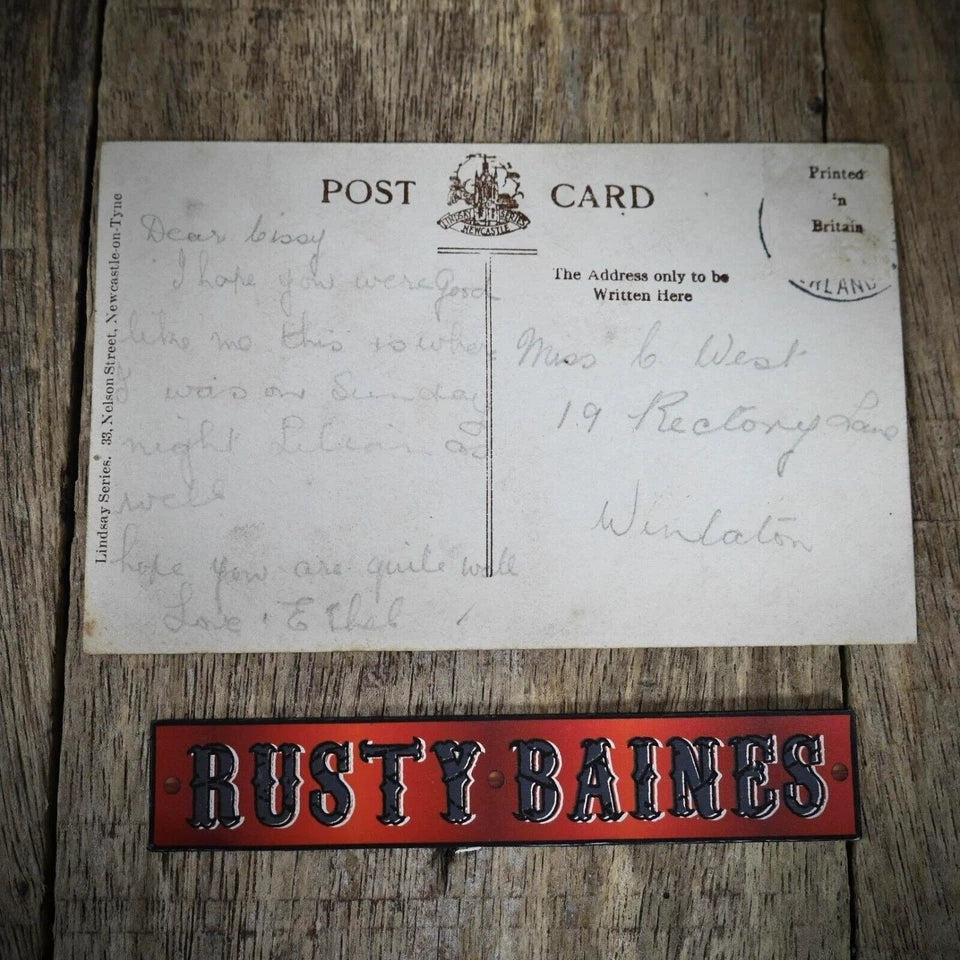 POST CARD
LINDSAY SERIES
NEWCASTLE
Printed
in
Britain
RLAND
Lindsay Series. 33, Nelson Street, Newcastle-on-Tyne
The Address only to be
Written Here
Dear Cissy
I hope you were good
like me this is where
I was on Sunday
night
well
hope you are quite well
Love Ethel
Miss C West
19 Rectory Lane
Winlaton
RUSTY BAINES